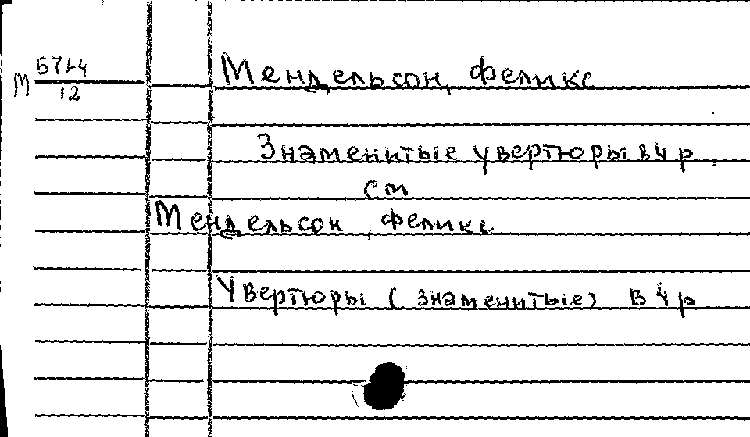 М 571-4
12
Мендельсон, Феликс
Знаменитые увертюры в 4 р.
см
Мендельсон, Феликс
Увертюры (знаменитые) в 4 р